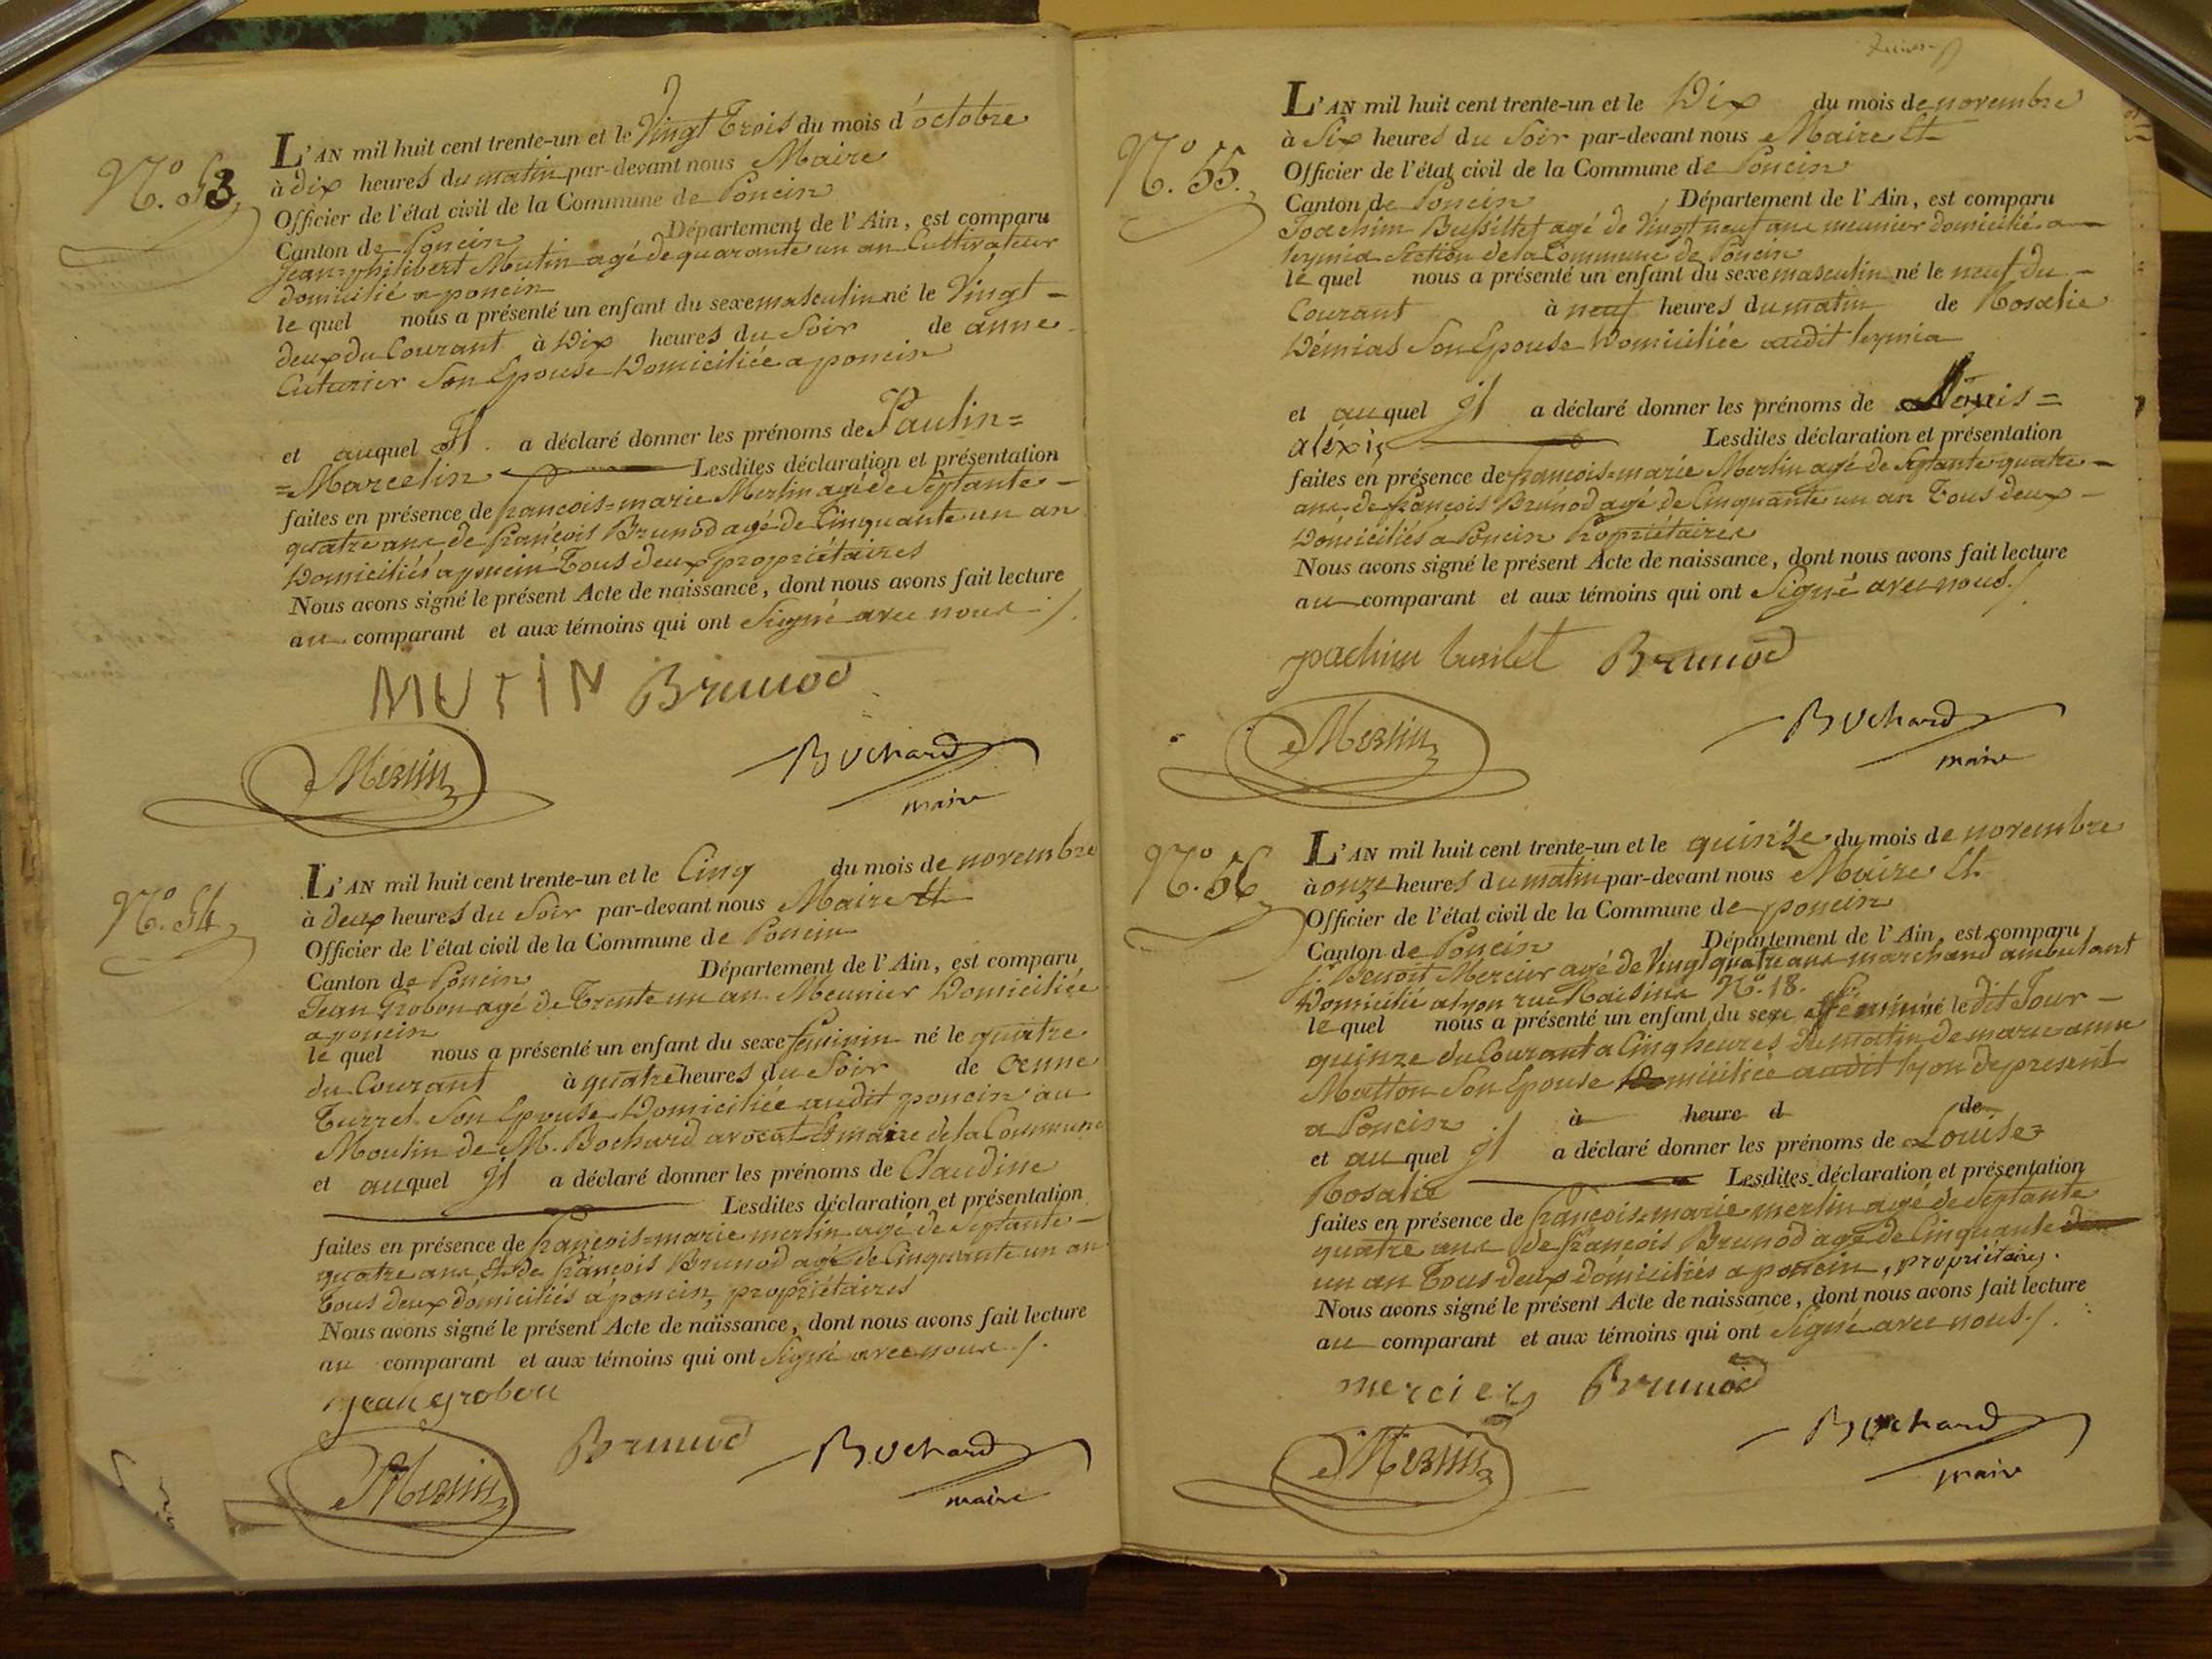 N.º 53
L'AN mil huit cent trente-un et le Vingt Trois du mois d'octobre
à dix heures du matin par-devant nous Maire
Officier de l'état civil de la Commune de Poncin
Canton de Poncin Département de l'Ain, est comparu
Jean=philibert Mutin agé de quarante un an Cultivateur
domicilié a poncin
le quel nous a présenté un enfant du sexe masculin né le Vingt-
deux du Courant à Dix heures du Soir de anne
Cuturier Son Epouse Domiciliée a poncin
et auquel Il a déclaré donner les prénoms de Paulin=
=Marcelin Lesdites déclaration et présentation
faites en présence de francois=marie Merlin agé de Septante-
quatre ans de françois Brunod agé de Cinquante un an
Domiciliés a poncin Tous deux propriétaires
Nous avons signé le présent Acte de naissance, dont nous avons fait lecture
au comparant et aux témoins qui ont Signé avec nous ./.
MUTIN Brunod
Merlin
Bochard
maire
N.º 54
L'AN mil huit cent trente-un et le Cinq du mois de novembre
à deux heures du Soir par-devant nous Maire Et
Officier de l'état civil de la Commune de Poncin
Canton de Poncin Département de l'Ain, est comparu
Jean Grobon agé de Trente un an Meunier Domiciliée
a poncin
le quel nous a présenté un enfant du sexe feminin né le quatre
du Courant à quatre heures du Soir de
Turrel Son Epouse Domiciliée audit poncin au
Moulin de M. Bochard avocat Et maire de la Commune
et auquel Il a déclaré donner les prénoms de Claudine
Lesdites déclaration et présentation
faites en présence de françois=marie merlin agé de Septante-
quatre ans Et de françois Brunod agé de Cinquante un an
Tous deux domiciliés a poncin, propriétaires
Nous avons signé le présent Acte de naissance, dont nous avons fait lecture
au comparant et aux témoins qui ont Signé avec nous ./.
jean grobon
Brunod
Merlin
Bochard
maire
N.º 55.
L'AN mil huit cent trente-un et le Dix du mois de novembre
à Six heures du Soir par-devant nous Maire Et
Officier de l'état civil de la Commune de Poncin
Canton de Poncin Département de l'Ain, est comparu
Joachim Bussillet agé de Vingt neuf ans meunier domicilié a
leymia Section de la Commune de Poncin
le quel nous a présenté un enfant du sexe masculin né le neuf du-
Courant à neuf heures du matin de Rosalie
Démias Son Epouse Domiciliée audit leymia
et auquel Il a déclaré donner les prénoms de Louis=
alexis Lesdites déclaration et présentation
faites en présence de francois=marie Merlin agé de Septante quatre-
ans de françois Brunod agé de Cinquante un an Tous deux-
Domiciliés a Poncin Propriétaires
Nous avons signé le présent Acte de naissance, dont nous avons fait lecture
au comparant et aux témoins qui ont Signé avec nous ./.
joachim busilet Brunod
Merlin
Bochard
maire
N.º 56
L'AN mil huit cent trente-un et le quinze du mois de novembre
à onze heures du matin par-devant nous Maire Et
Officier de l'état civil de la Commune de poncin
Canton de Poncin Département de l'Ain, est comparu
Benoit Mercier agé de Vingt quatre ans marchand ambulant
Domicilié a lyon rue Raisins N.º 18.
le quel nous a présenté un enfant du sexe féminin né le dit Jour-
quinze du Courant a Cinq heures du matin de marie anne
Matton Son Epouse Domiciliée audit lyon de present
a Poncin à heure d de
et au quel Il a déclaré donner les prénoms de Louise=
Rosalie Lesdites déclaration et présentation
faites en présence de françois=marie merlin agé de Septante
quatre ans de françois Brunod agé de Cinquante
un an Tous deux domiciliés a poncin, propriétaires.
Nous avons signé le présent Acte de naissance, dont nous avons fait lecture
au comparant et aux témoins qui ont Signé avec nous ./.
mercier Brunod
Merlin
Bochard
maire